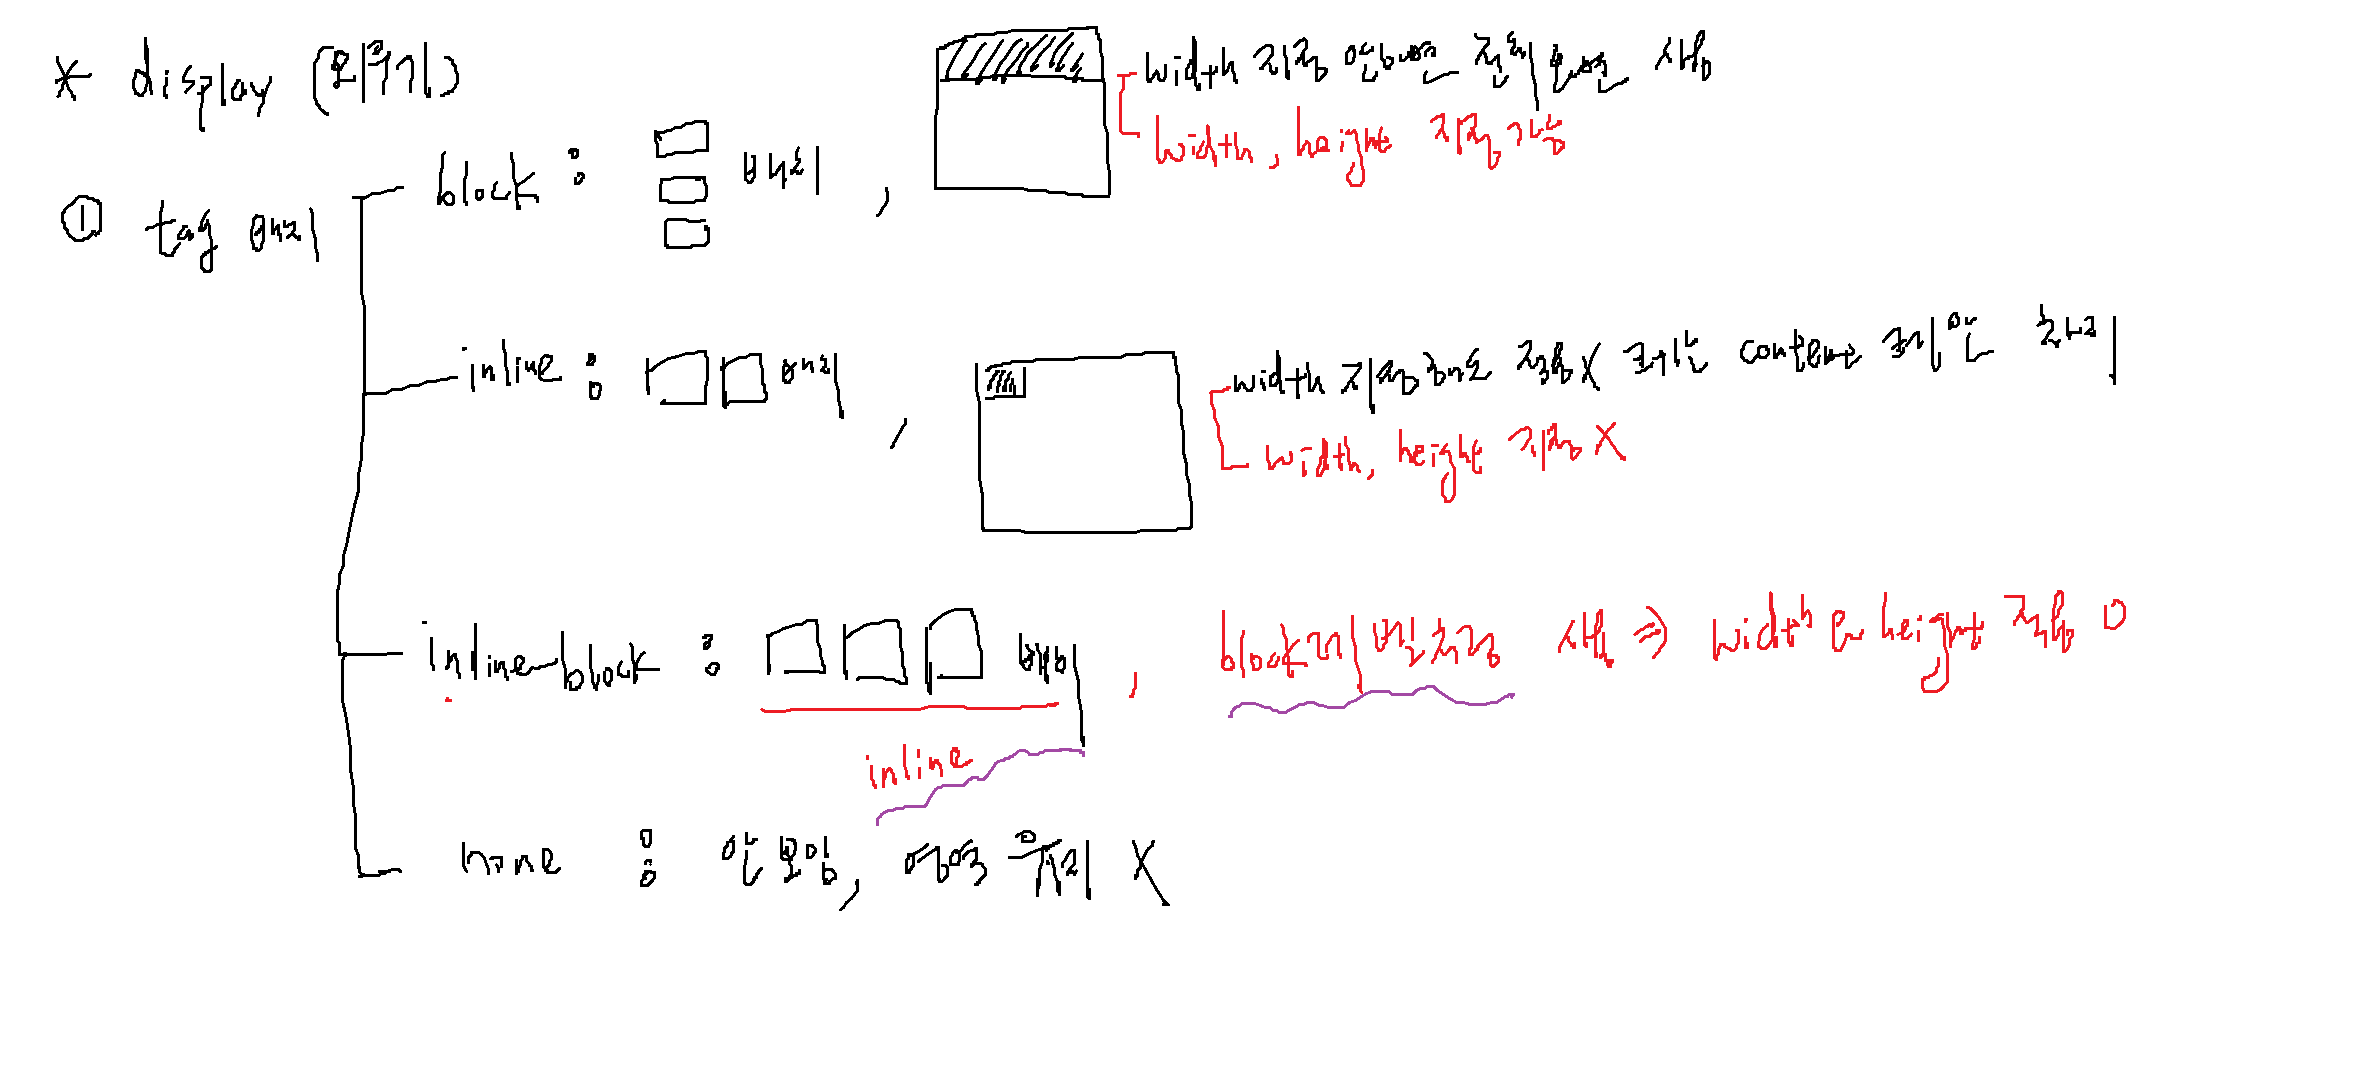 * display (보여주기)
① tag 배치
block : 배치 , width 지정 안하면 전체 화면 사용
width, height 지정 가능
inline : 배치 , width 지정해도 적용X 크기는 content 크기만 차지
width, height 지정 X
inline-block : 배치 , block의 변칙적 사용 ⇒ width & height 적용 O
inline
none : 안보임, 영역 유지 X